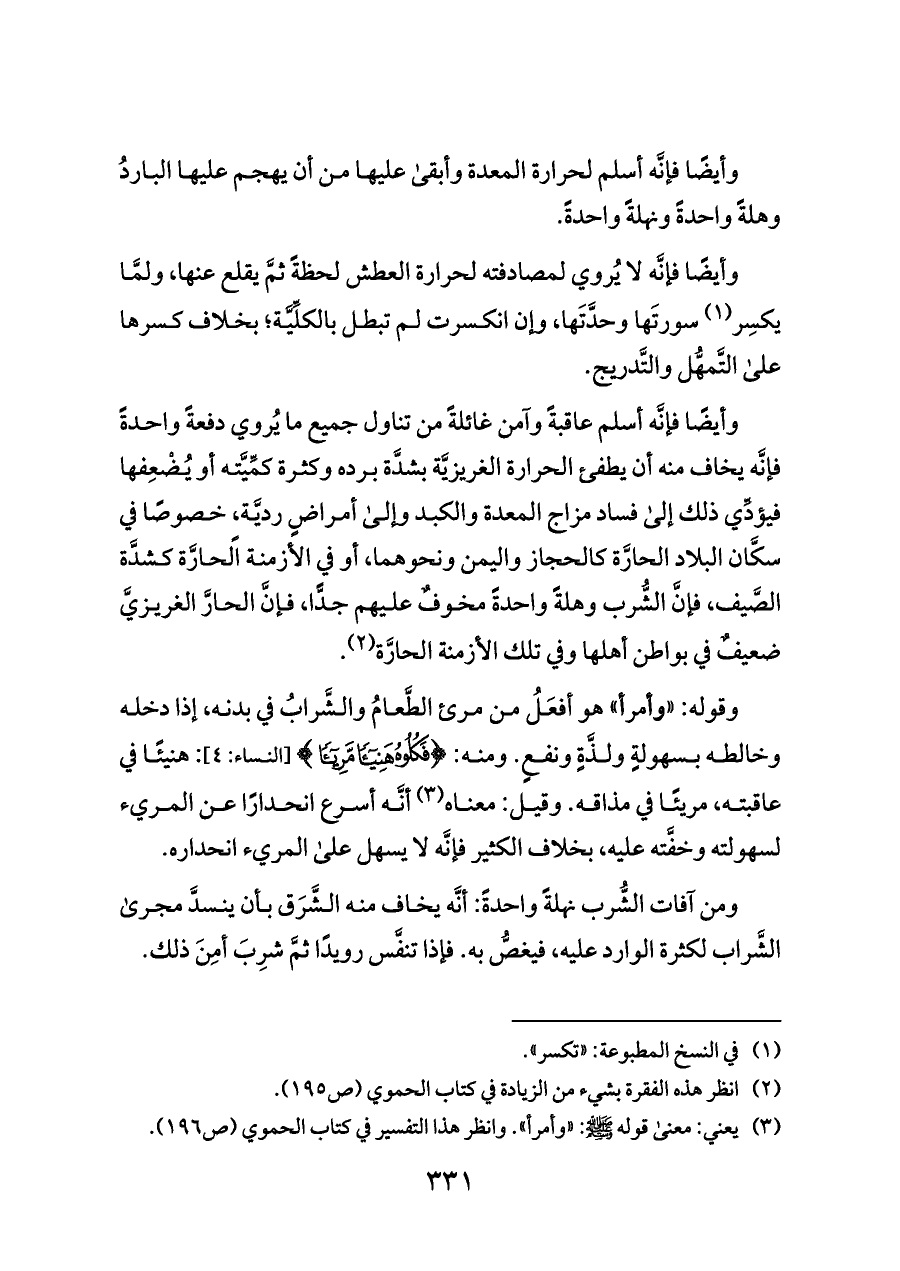 وأيضًا فإنَّه أسلم لحرارة المعدة وأبقىٰ عليها من أن يهجم عليها الباردُ
وهلةً واحدةً ونهلةً واحدةً.
وأيضًا فإنَّه لا يُروي لمصادفته لحرارة العطش لحظةً ثمَّ يقلع عنها، ولمَّا
يكسِر(١) سورتَها وحدَّتَها، وإن انكسرت لم تبطل بالكلِّيَّة؛ بخلاف كسرها
علىٰ التَّمهُّل والتَّدريج.
وأيضًا فإنَّه أسلم عاقبةً وآمن غائلةً من تناول جميع ما يُروي دفعةً واحدةً
فإنَّه يخاف منه أن يطفئ الحرارة الغريزيَّة بشدَّة برده وكثرة كمِّيَّته أو يُضْعِفها
فيؤدِّي ذلك إلىٰ فساد مزاج المعدة والكبد وإلىٰ أمراضٍ رديَّة، خصوصًا في
سكَّان البلاد الحارَّة كالحجاز واليمن ونحوهما، أو في الأزمنة الحارَّة كشدَّة
الصَّيف، فإنَّ الشُّرب وهلةً واحدةً مخوفٌ عليهم جدًّا، فإنَّ الحارَّ الغريزيَّ
ضعيفٌ في بواطن أهلها وفي تلك الأزمنة الحارَّة(٢).
وقوله: «وأمرأ» هو أفعَلُ من مرئ الطَّعامُ والشَّرابُ في بدنه، إذا دخله
وخالطه بسهولةٍ ولذَّةٍ ونفعٍ. ومنه: ﴿فَكُلُوهُ هَنِيٓـًٔا مَّرِيٓـًٔا﴾ [النساء: ٤]: هنيئًا في
عاقبته، مريئًا في مذاقه. وقيل: معناه(٣) أنَّه أسرع انحدارًا عن المريء
لسهولته وخفَّته عليه، بخلاف الكثير فإنَّه لا يسهل علىٰ المريء انحداره.
ومن آفات الشُّرب نهلةً واحدةً: أنَّه يخاف منه الشَّرَق بأن ينسدَّ مجرىٰ
الشَّراب لكثرة الوارد عليه، فيغصُّ به. فإذا تنفَّس رويدًا ثمَّ شربَ أمِنَ ذلك.
(١) في النسخ المطبوعة: «تكسر».
(٢) انظر هذه الفقرة بشيء من الزيادة في كتاب الحموي (ص١٩٥).
(٣) يعني: معنىٰ قوله ﷺ: «وأمرأ». وانظر هذا التفسير في كتاب الحموي (ص١٩٦).
٣٣١